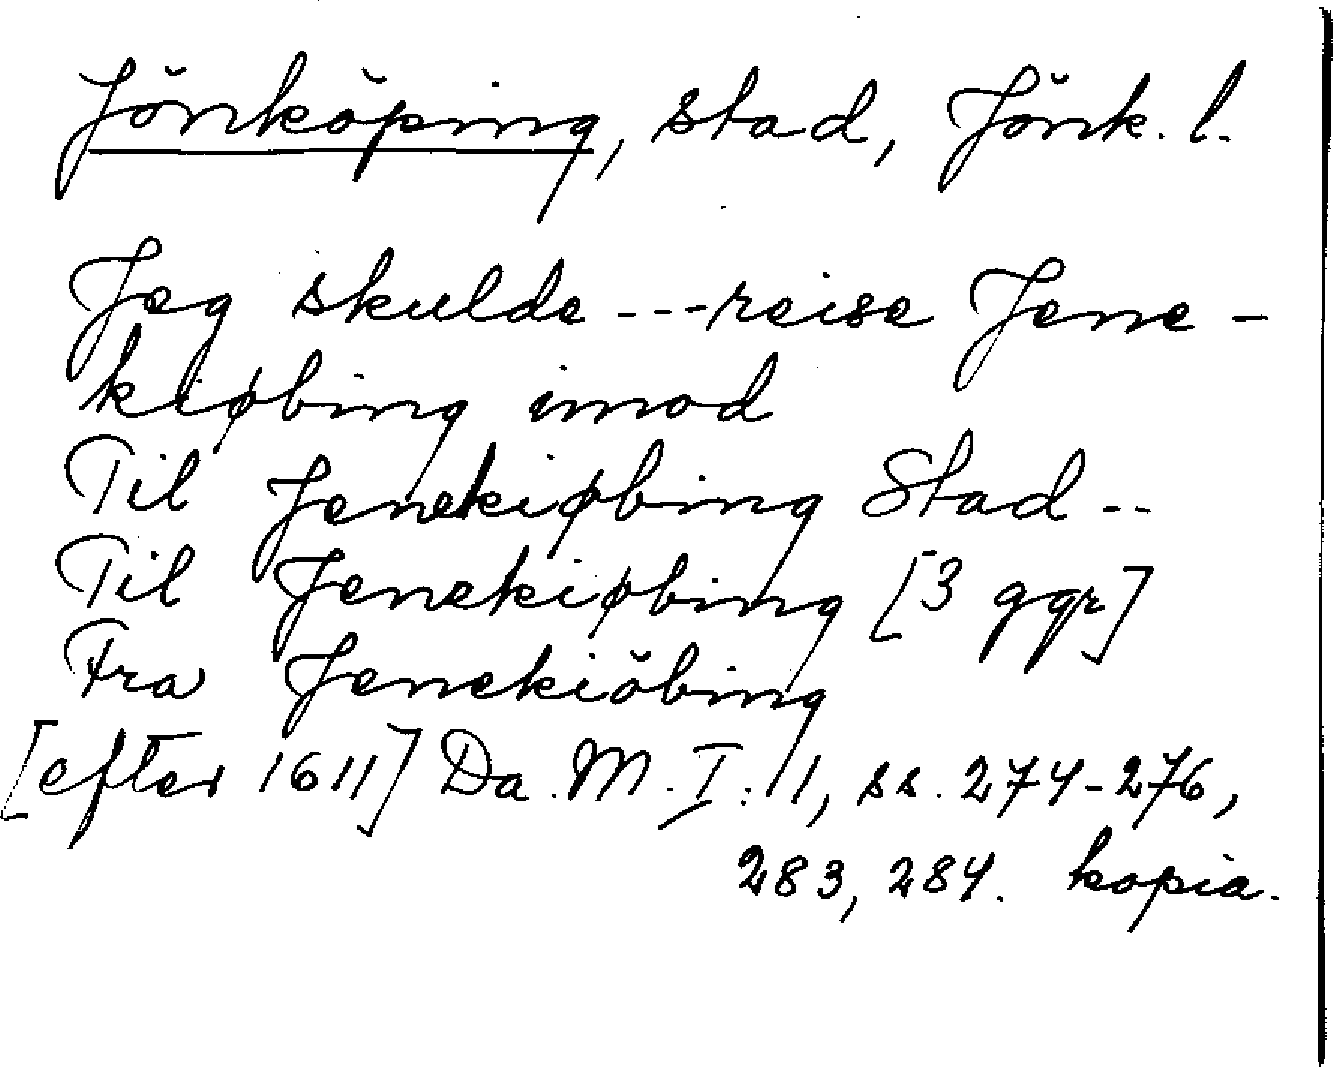 Jönköping, stad, Jönk. l.
Jeg skulde ---reise Jene-
kiøbing imod
Til Jenekiøbing Stad--
Til Jenekiøbing [3 ggr]
Fra Jenekiöbing
[efter 1611] Da. M. I: 1, ss. 274-276,
283, 284. kopia.